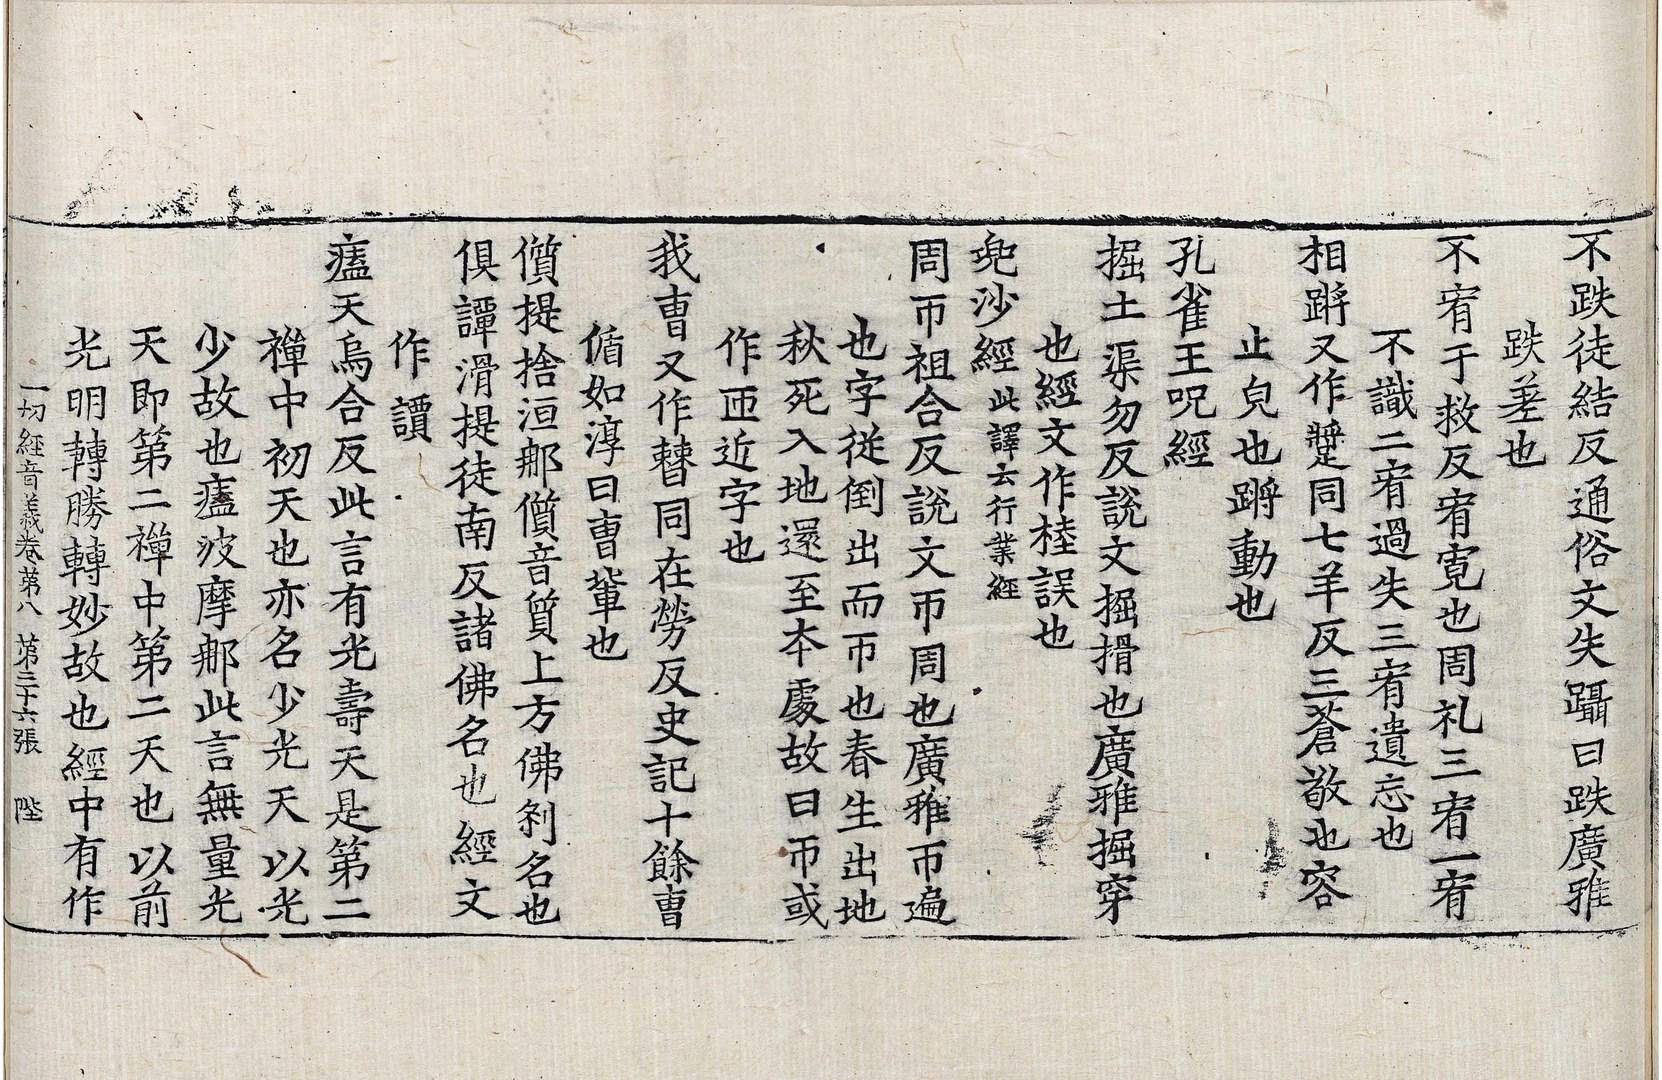 不跌徒結反通俗文失躡曰跌廣雅
跌差也
不宥于救反宥寛也周礼三宥一宥
不識二宥過失三宥遺忘也
相蹡又作躄同七羊反三蒼敬也容
止皃也蹡動也
孔雀王呪經
掘土渠勿反說文掘搰也廣雅掘穿
也經文作𣔻誤也
兠沙經此譯云行業經
周帀祖合反說文帀周也廣雅帀遍
也字從倒出而帀也春生出地
秋死入地還至本處故曰帀或
作迊近字也
我曺又作䜊同在勞反史記十餘曺
偱如淳曰曺輩也
儨提捨洹郍儨音質上方佛刹名也
俱譚滑提徒南反諸佛名也經文
作譚
廅天烏合反此言有光壽天是第二
禪中初天也亦名少光天以光
少故也廅波摩郍此言無量光
天即第二禪中第二天也以前
光明轉勝轉妙故也經中有作
一切經音義卷第八 第三十六張 陛